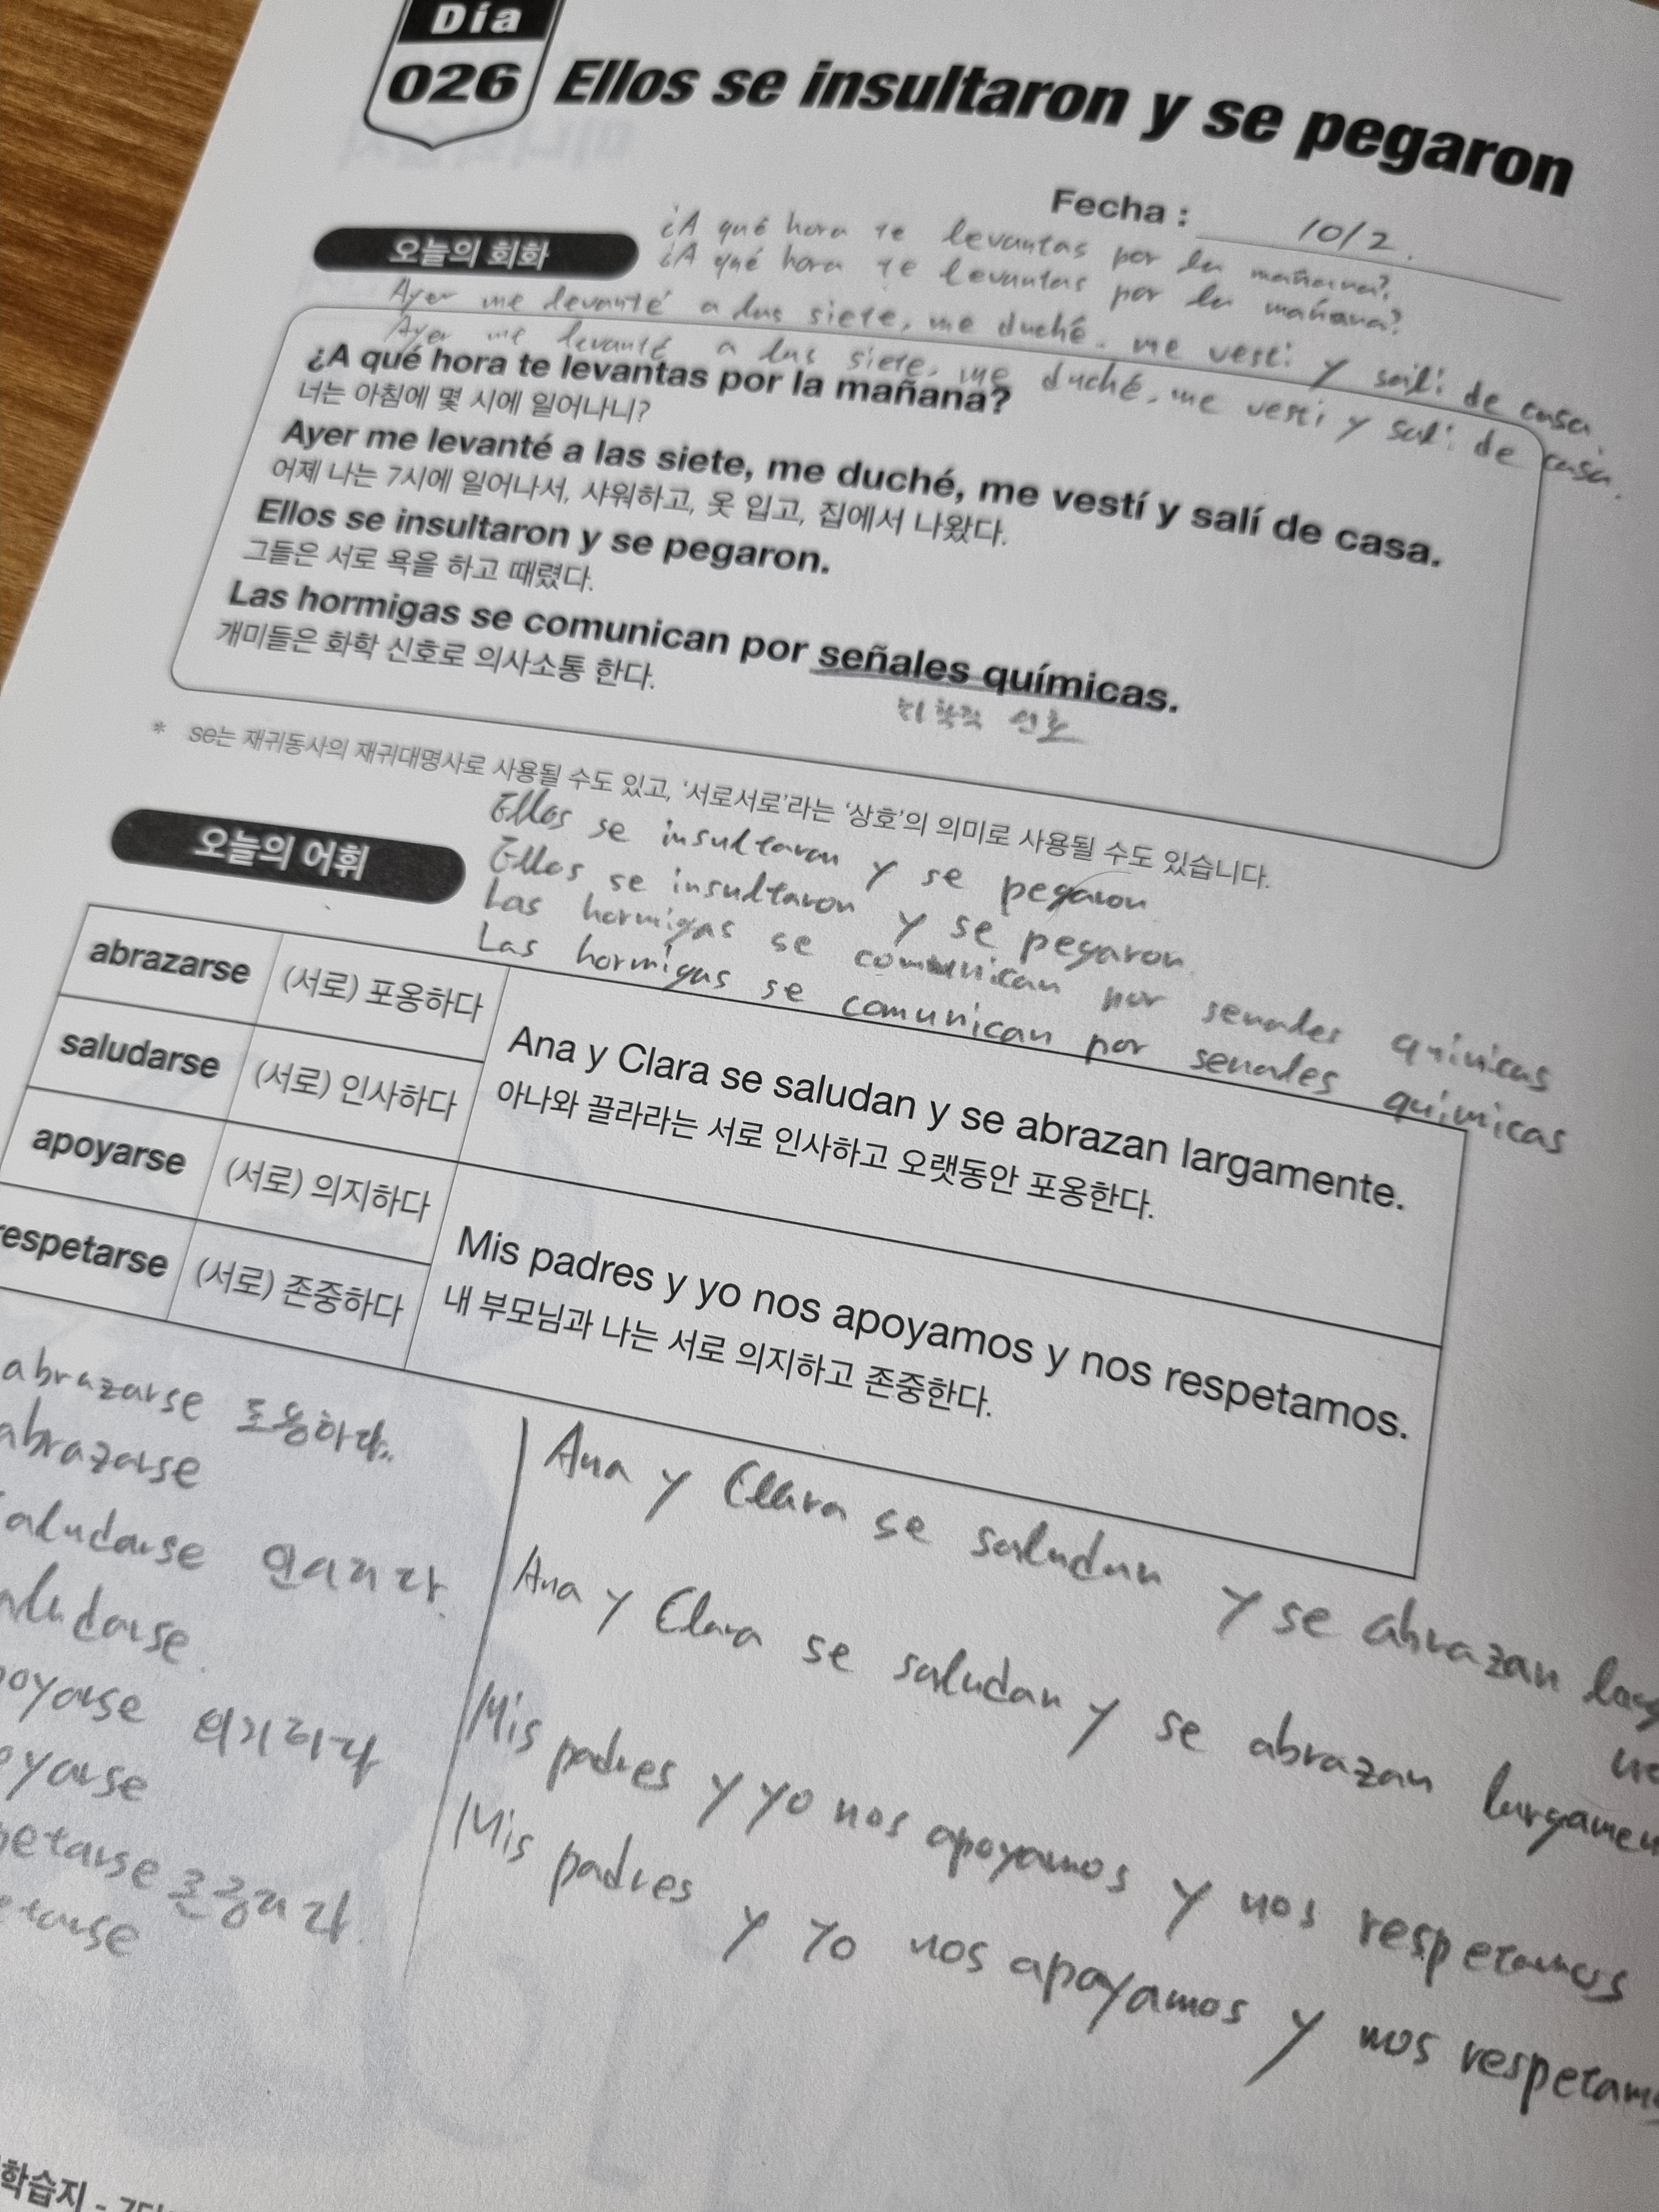 Día
026
Ellos se insultaron y se pegaron
Fecha : 10/2.
오늘의 회화
¿A qué hora te levantas por la mañana?
¿A qué hora te levantas por la mañana?
Ayer me levanté a las siete, me duché, me vestí y salí de casa.
Ayer me levanté a las siete, me duché, me vestí y salí de casa.
¿A qué hora te levantas por la mañana?
너는 아침에 몇 시에 일어나니?
Ayer me levanté a las siete, me duché, me vestí y salí de casa.
어제 나는 7시에 일어나서, 샤워하고, 옷 입고, 집에서 나왔다.
Ellos se insultaron y se pegaron.
그들은 서로 욕을 하고 때렸다.
Las hormigas se comunican por señales químicas.
개미들은 화학 신호로 의사소통 한다.
화학적 신호
* se는 재귀동사의 재귀대명사로 사용될 수도 있고, '서로서로'라는 '상호'의 의미로 사용될 수도 있습니다.
오늘의 어휘
Ellos se insultaron y se pegaron
Ellos se insultaron y se pegaron.
Las hormigas se comunican por
Las hormigas se comunican por químicas
abrazarse (서로) 포옹하다
saludarse (서로) 인사하다
Ana y Clara se saludan y se abrazan largamente.
아나와 끌라라는 서로 인사하고 오랫동안 포옹한다.
apoyarse (서로) 의지하다
respetarse (서로) 존중하다
Mis padres y yo nos apoyamos y nos respetamos.
내 부모님과 나는 서로 의지하고 존중한다.
abrazarse 포옹하다.
abrazarse
aludarse 인사하다.
aludarse.
poyarse 의지하다
oyarse
petarse 존중하다.
etarse
Ana y Clara se saludan y se abrazan
Ana y Clara se saludan y se abrazan largamen
Mis padres y yo nos apoyamos y nos respetamos
Mis padres y yo nos apoyamos y nos respetam
학습지 -